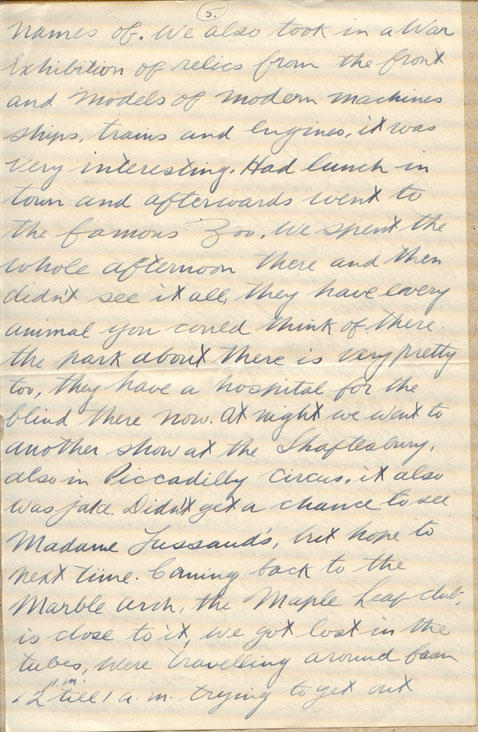 5.
names of. We also took in a War
Exhibition of relics from the front
and models of modern machines
ships, trains and engines, it was
very interesting. Had lunch in
town and afterwards went to
the famous Zoo. We spent the
whole afternoon there and then
didn't see it all, they have every
animal you could think of there.
the park about there is very pretty
too, they have a hospital for the
blind there now. At night we went to
another show at the Shaftesbury,
also in Piccadilly Circus, it also
was jake. Didn't get a chance to see
Madame Tussaud's, but hope to
next time. Coming back to the
Marble Arch, the Maple Leaf club,
is close to it, we got lost in the
tubes, were travelling around from
12 till 1 a.m. trying to get out